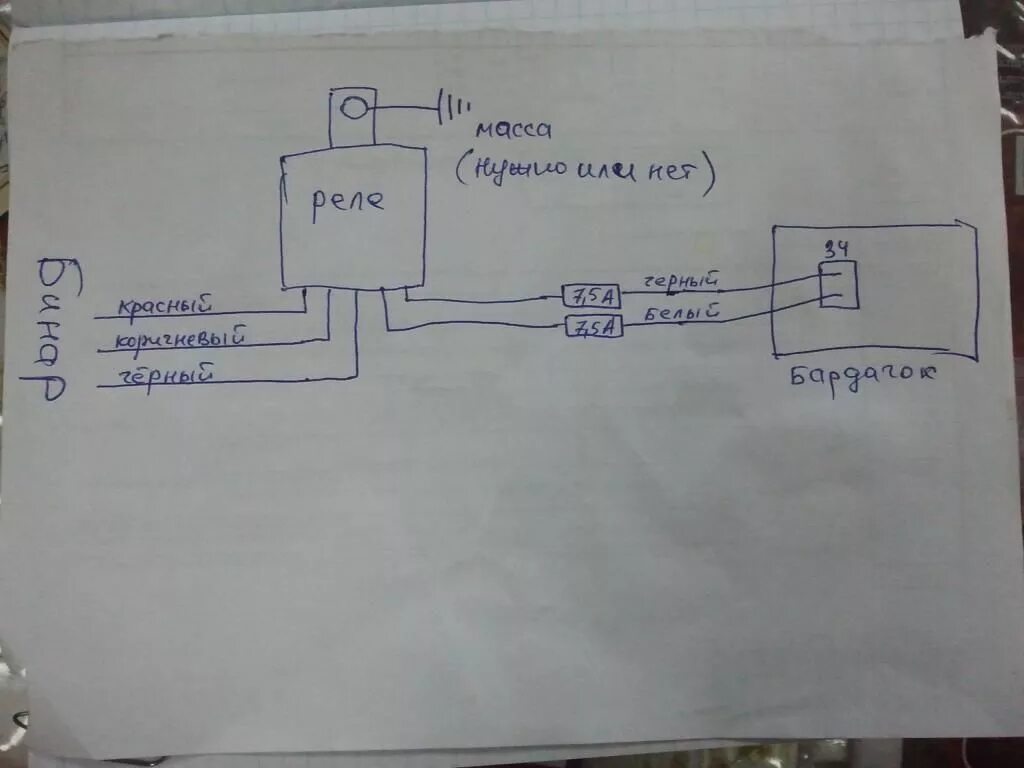 масса
(нужно или нет)
реле
Бинар
красный
коричневый
чёрный
7,5А
черный
7,5А
белый
34
Бардачок